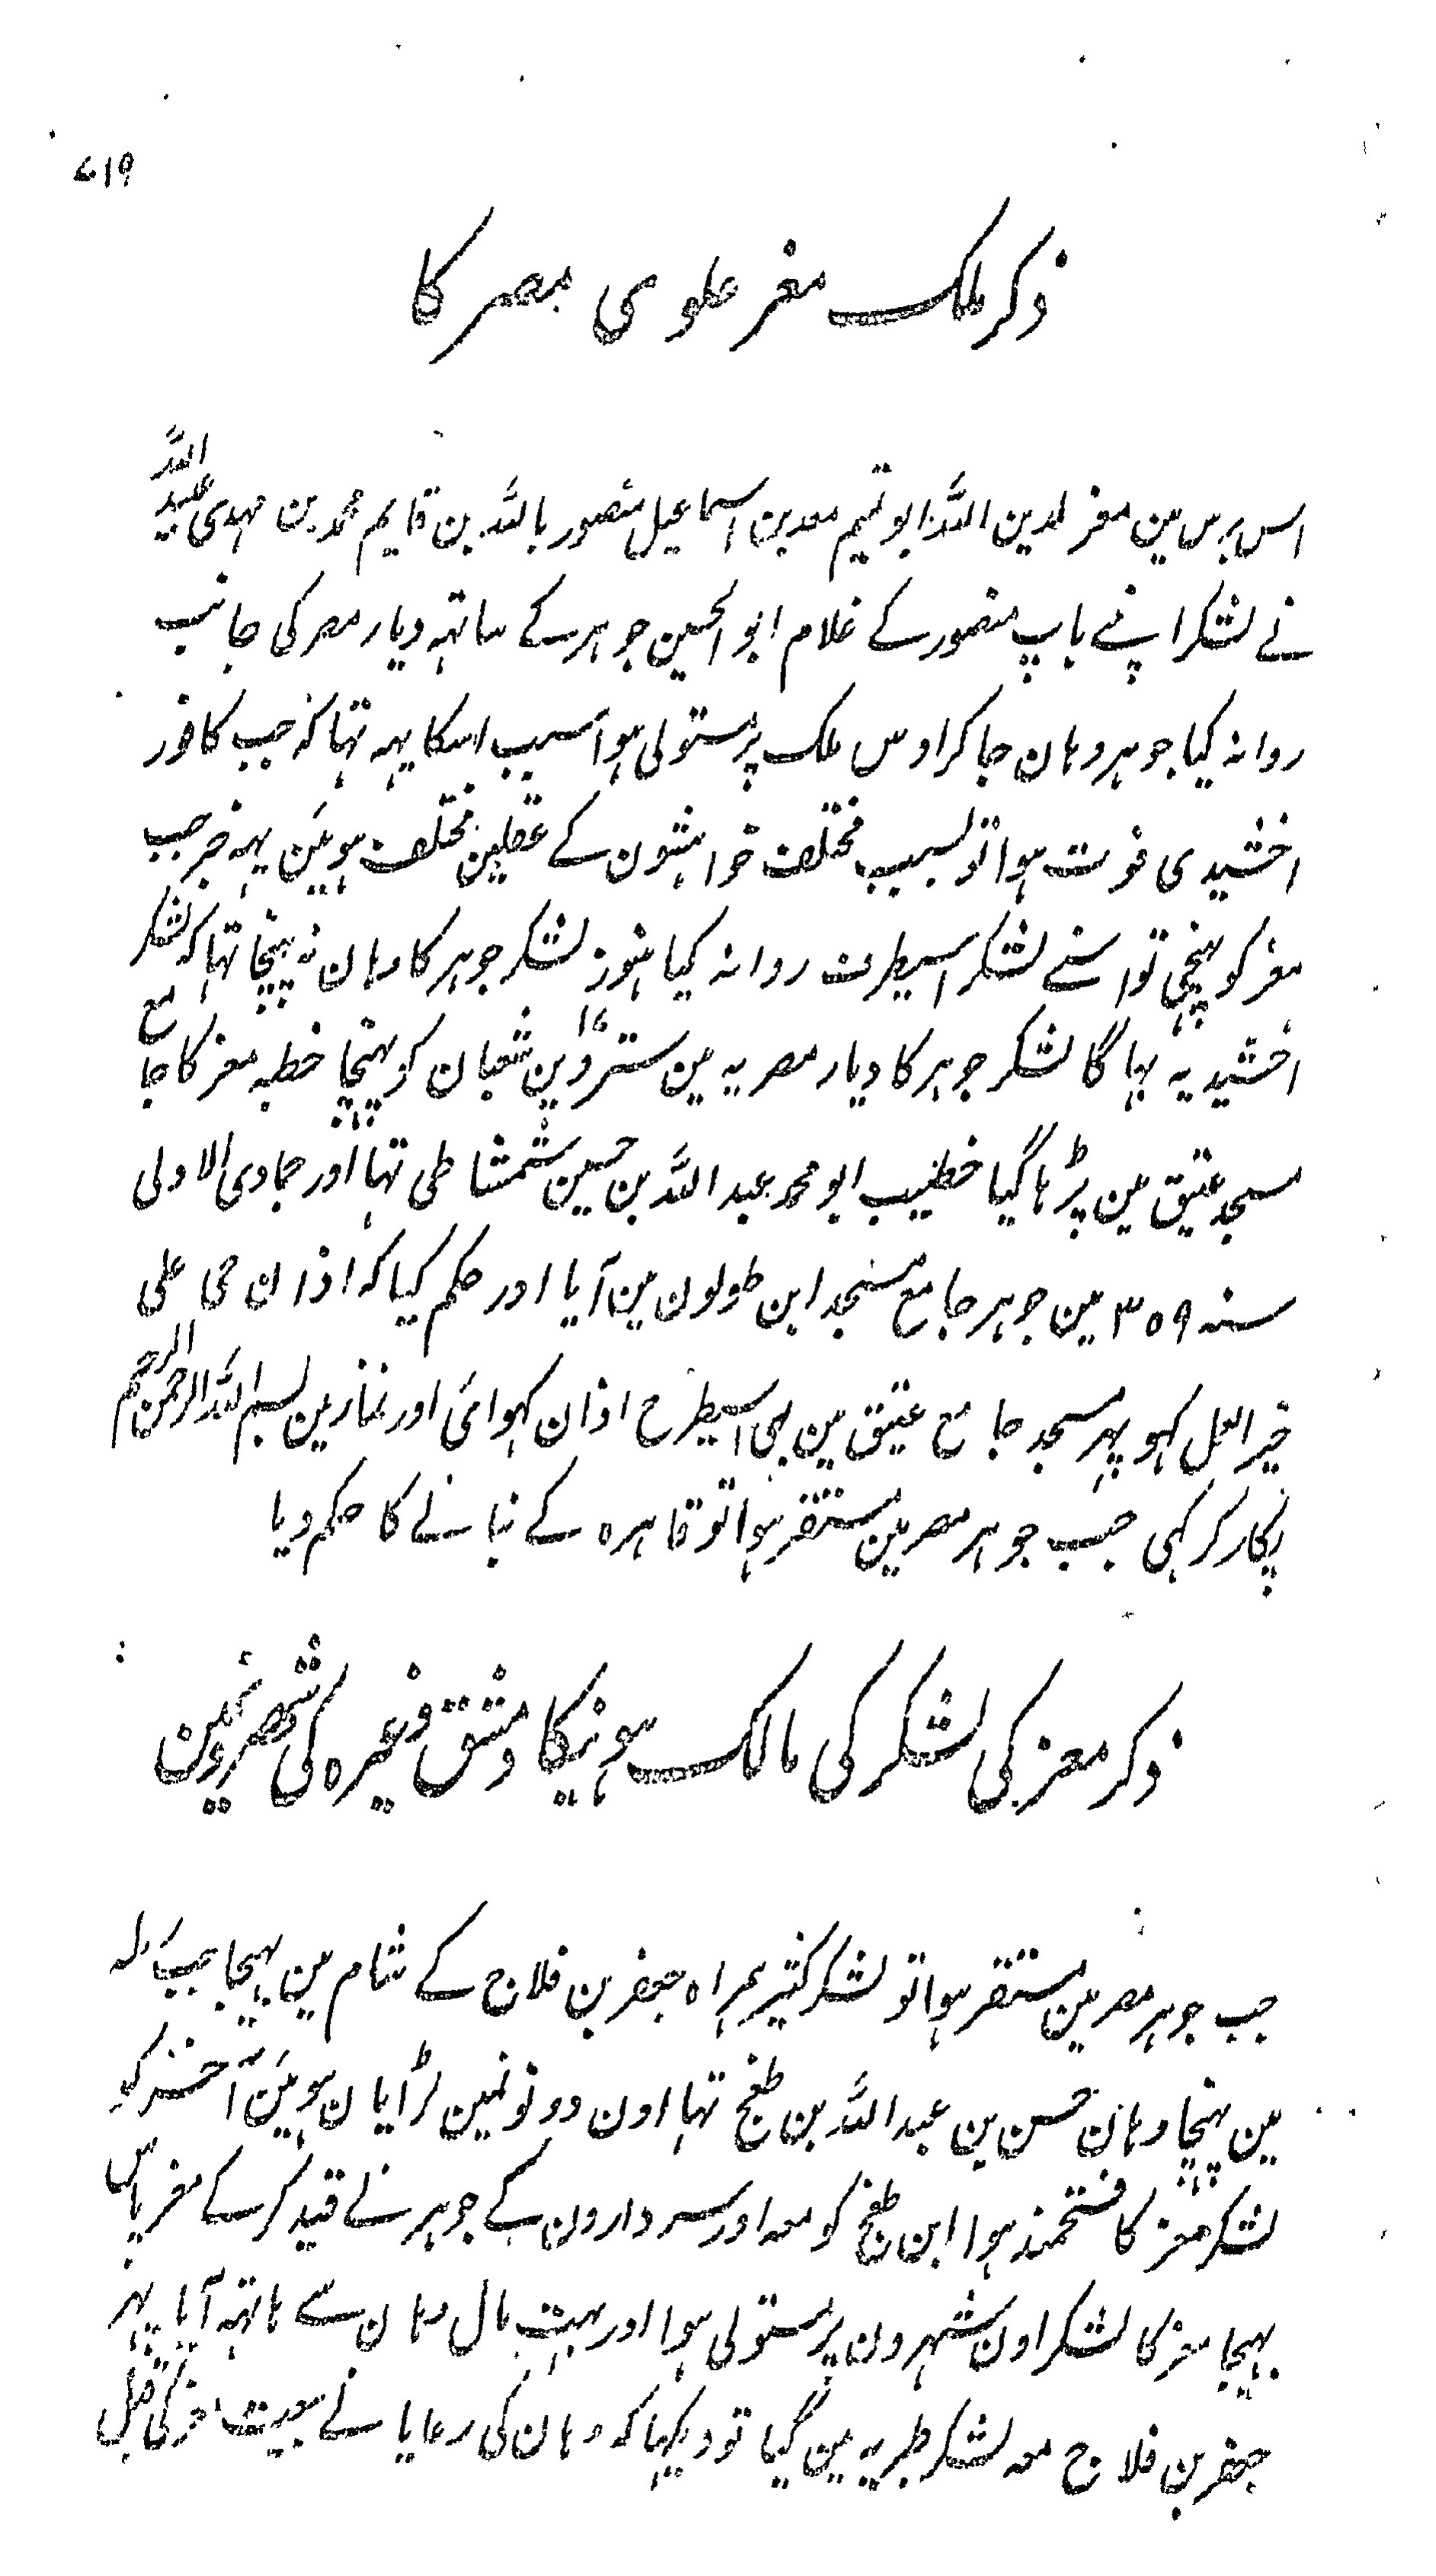 ۷۱۹
ذکر ملک معز علوی مبصر کا
اس برس مین معز لدین اللہ ابو تمیم معد بن اسماعیل منصور باللہ بن قایم محمد بن مہدی عبید اللہ
نے لشکر اپنے باپ منصور کے غلام ابو الحسین جوہر کے ساتہہ دیار مصر کی جانب
روانہ کیا جوہر وہان جا کر اوس ملک پر مستولی ہوا سبب اسکا یہہ تہا کہ جب کافور
اخشیدی فوت ہوا تو بسبب مختلف خواہشون کے عقلین مختلف ہوئین یہہ خبر جب
معز کو پہنچی تو اسنے لشکر اسیطرف روانہ کیا ہنوز لشکر جوہر کا وہان نہ پہنچا تہا کہ لشکر
اخشیدیہ بہاگا لشکر جوہر کا دیار مصریہ مین ستروین ۱۷ شعبان کو پہنچا خطبہ معز کا جامع
مسجد عتیق مین پڑہا گیا خطیب ابو محمد عبد اللہ بن حسین شمشاطی تہا اور جمادی الاولی
سنہ ۳۵۹ مین جوہر جامع مسجد ابن طولون مین آیا اور حکم کیا کہ اذان حی علی
خیر العمل کہو پہر مسجد جامع عتیق مین بہی اسیطرح اذان کہوائی اور نماز مین بسم اللہ الرحمن الرحیم
پکار کر کہی جب جوہر مصر مین مستقر ہوا تو قاہرہ کے بنانے کا حکم دیا
ذکر معز کی لشکر کی مالک ہونیکا دمشق وغیرہ کی شہرونمین
جب جوہر مصر مین مستقر ہوا تو لشکر کثیر ہمراہ جعفر بن فلاح کے شام مین بہیجا جب رملہ
مین پہنچا وہان حسن بن عبد اللہ بن طغج تہا اون دونونمین لڑایان ہوئین آخر کو
لشکر معز کا فتحمند ہوا ابن طغج کو معہ اور سردارون کے جوہر نے قید کر کے معز پاس
بہیجا معز کا لشکر اون شہرون پر مستولی ہوا اور بہت مال وہان سے ہاتہہ آیا پہر
جعفر بن فلاح معہ لشکر طبریہ مین گیا تو دیکہا کہ وہان کی رعایا نے بیعت معز کی قبل